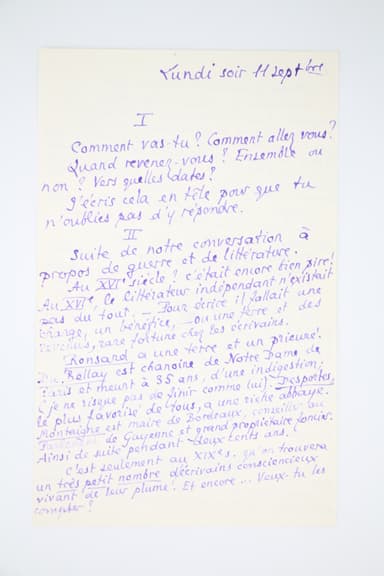 Lundi soir 11 septbre
I
Comment vas-tu? Comment allez vous?
Quand revenez-vous? Ensemble ou
non? Vers quelles dates?
J'écris cela en tête pour que tu
n'oublies pas d'y répondre.
II
Suite de notre conversation à
propos de guerre et de littérature.
Au XVIe siècle? c'était encore bien pire!
Au XVIe, le littérateur indépendant n'existait
pas du tout. — Pour écrire il fallait une
charge, un bénéfice, — ou une terre et des
revenus, rare fortune chez les écrivains.
Ronsard a une terre et un prieuré.
Du Bellay est chanoine de Notre Dame de
Paris et meurt à 35 ans, d'une indigestion;
(je ne risque pas de finir comme lui). Desportes,
le plus favorisé de tous, a une riche abbaye.
Montaigne est maire de Bordeaux, conseiller au
de Guyenne et grand propriétaire foncier.
Ainsi de suite pendant deux cents ans!
C'est seulement au XIXe s. qu'on trouvera
un très petit nombre d'écrivains consciencieux
vivant de leur plume! Et encore... Veux-tu les
compter?